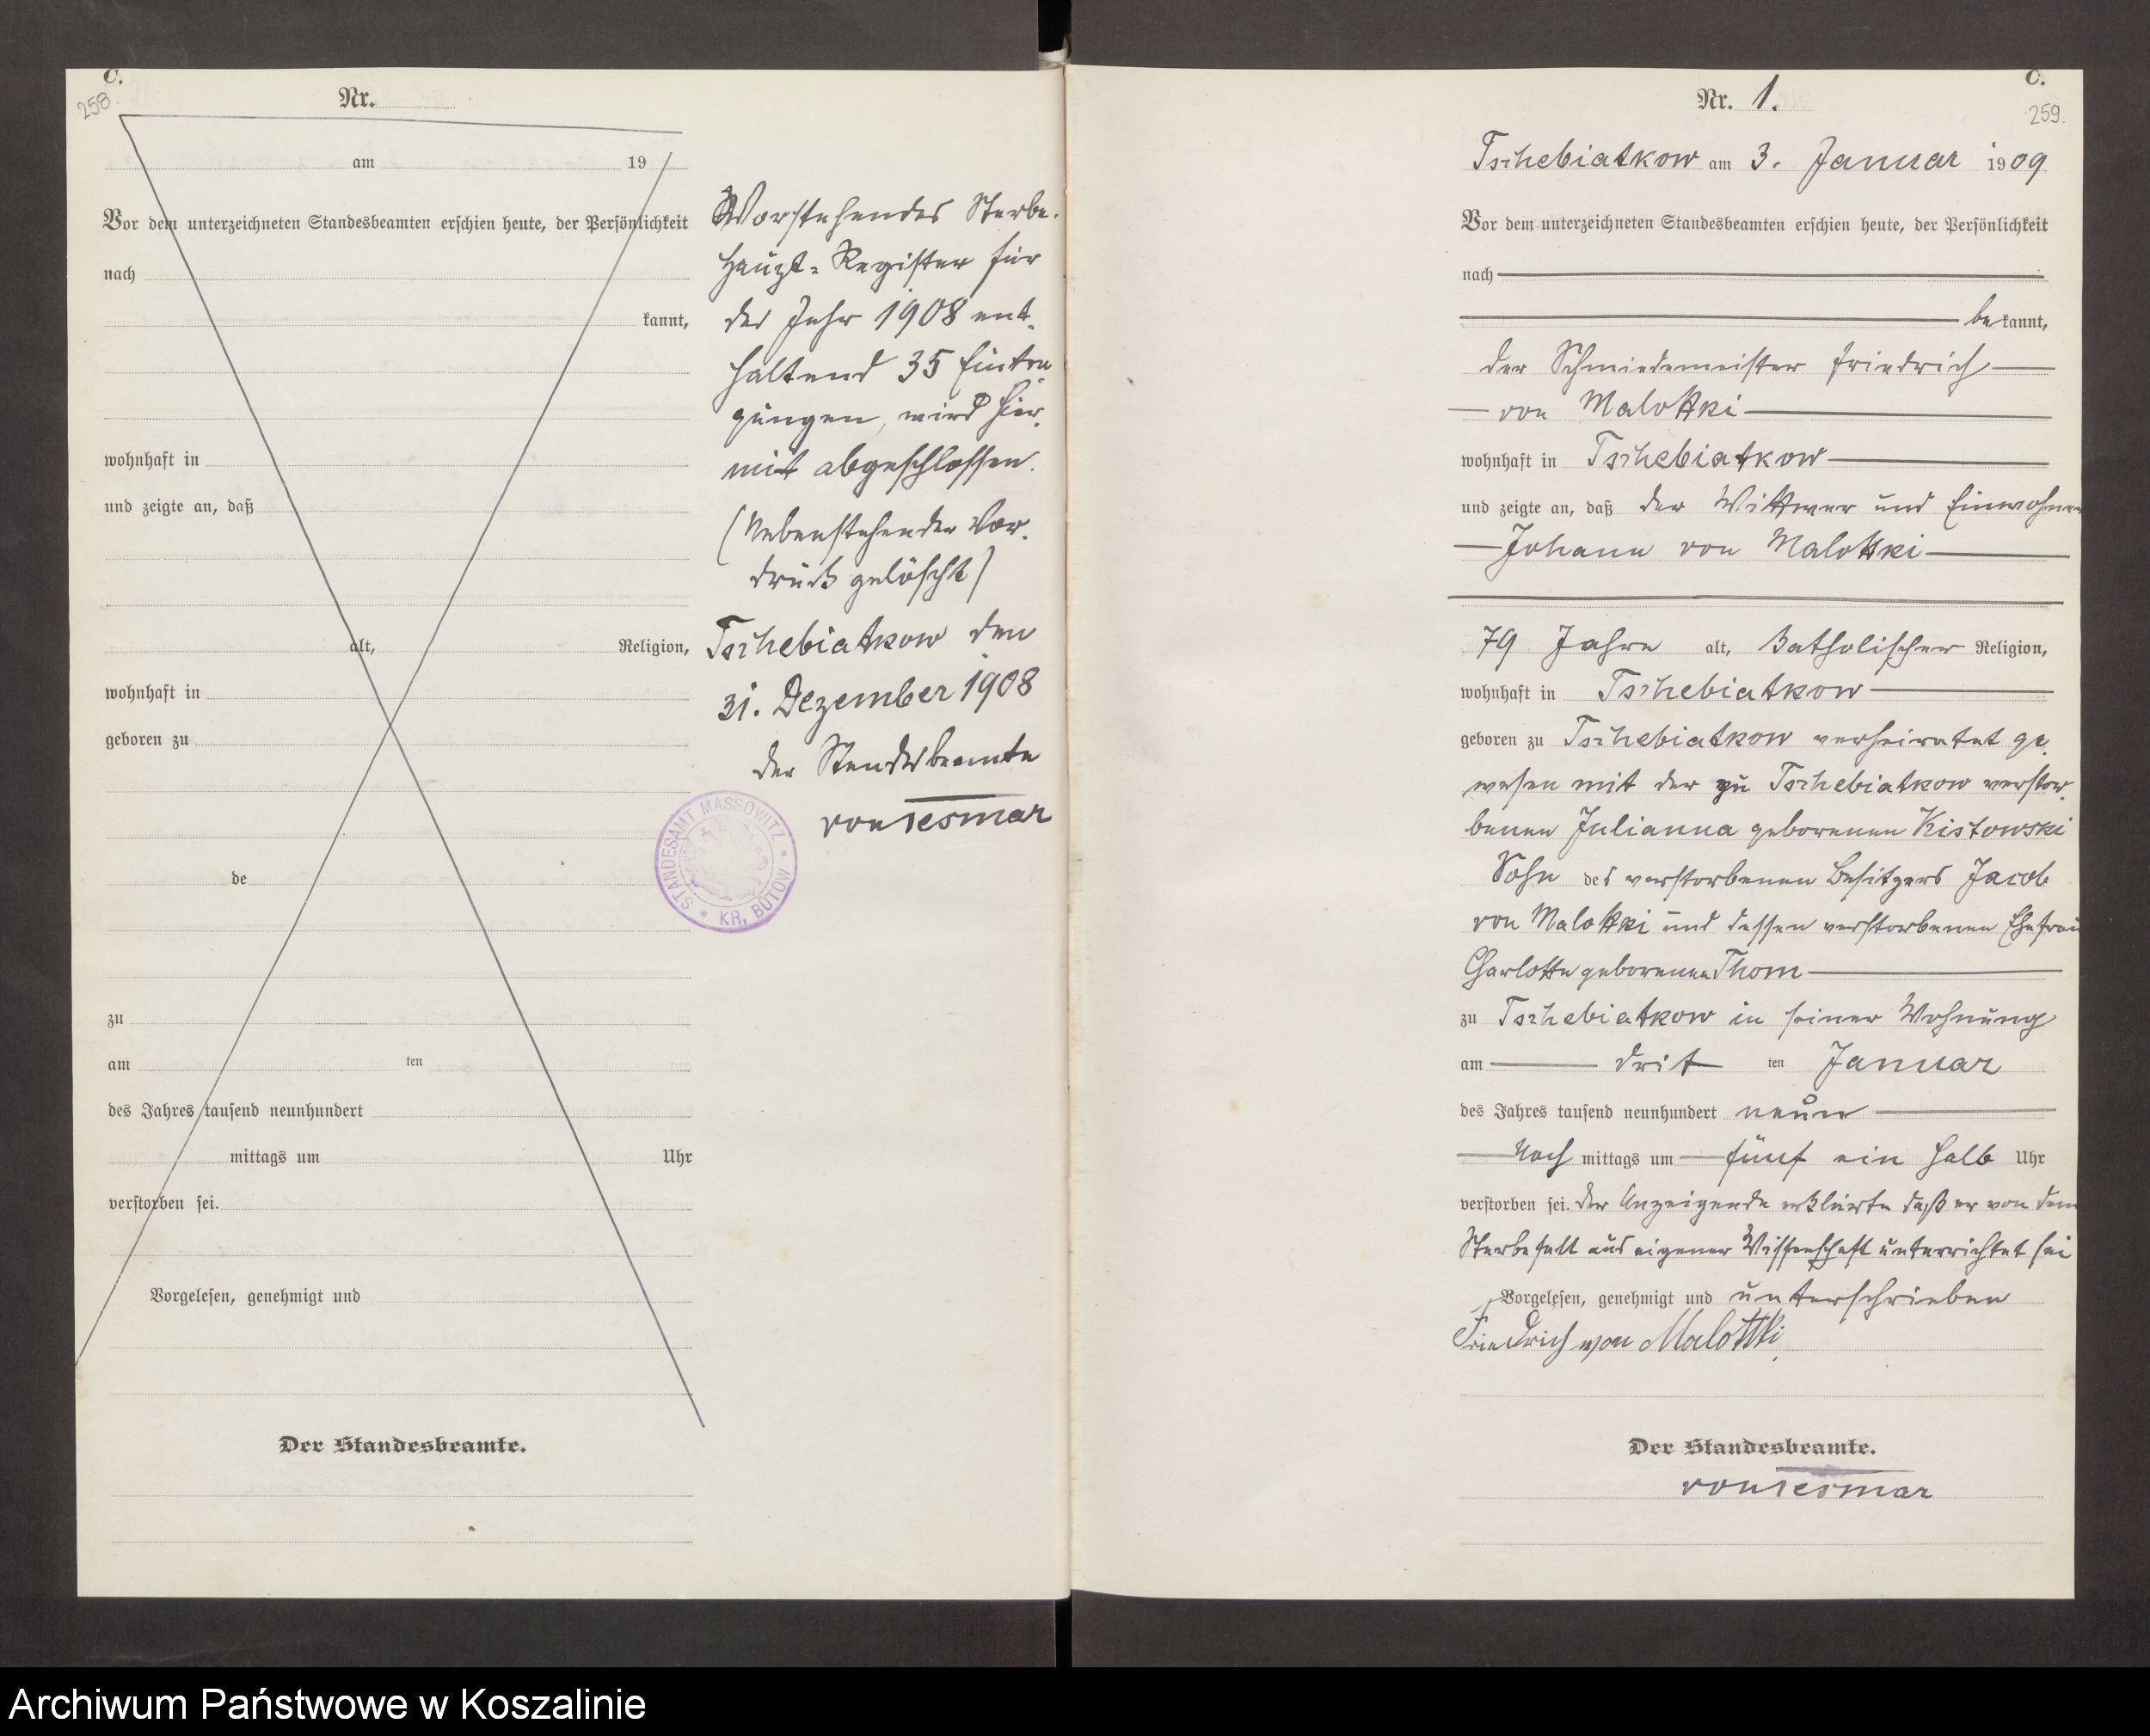 C.
258
Nr.
am 19
Vor dem unterzeichneten Standesbeamten erschien heute, der Persönlichkeit
nach
kannt,
wohnhaft in
und zeigte an, daß
alt, Religion,
wohnhaft in
geboren zu
de
zu
am ten
des Jahres tausend neunhundert
mittags um Uhr
verstorben sei.
Vorgelesen, genehmigt und
Der Standesbeamte.
Vorstehendes Sterbe-
Haupt-Register für
das Jahr 1908 ent-
haltend 35 Eintra
gungen, wird hier-
mit abgeschlossen.
(Nebenstehender Vor-
druck gelöscht)
Tschebiatkow den
31. Dezember 1908
der Standesbeamte
von Tesmar
STANDESAMT MASSOWITZ * KR. BÜTOW *
C.
259.
Nr. 1.
Tschebiatkow am 3. Januar 1909
Vor dem unterzeichneten Standesbeamten erschien heute, der Persönlichkeit
nach
bekannt,
der Schmiedemeister Friedrich
von Malottki
wohnhaft in Tschebiatkow
und zeigte an, daß der Wittwer und Einwohner
Johann von Malottki
79 Jahre alt, Katholischer Religion,
wohnhaft in Tschebiatkow
geboren zu Tschebiatkow verheiratet ge-
wesen mit der zu Tschebiatkow verstor-
benen Julianna geborenen Kistowski
Sohn des verstorbenen Besitzers Jacob
von Malottki und dessen verstorbenen Ehefrau
Charlotte geborenen Thom
zu Tschebiatkow in seiner Wohnung
am dritten Januar
des Jahres tausend neunhundert neun
Nachmittags um fünf ein halb Uhr
verstorben sei. Der Anzeigende erklärte daß er von dem
Sterbefall aus eigener Wissenschaft unterrichtet sei
Vorgelesen, genehmigt und unterschrieben
Friedrich von Malottki
Der Standesbeamte.
von Tesmar
Archiwum Państwowe w Koszalinie